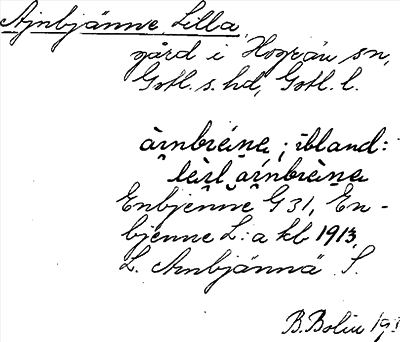 Ajnbjänne, Lilla,
gård i Hogrän sn,
Gotl. s. hd, Gotl. l.
àrnbrèine ; ibland:
lèrl àrnbrèine
Enbjenne G 31, En-
bjenne L:a kb 1913,
L. Ambjännä S.
B. Bolin